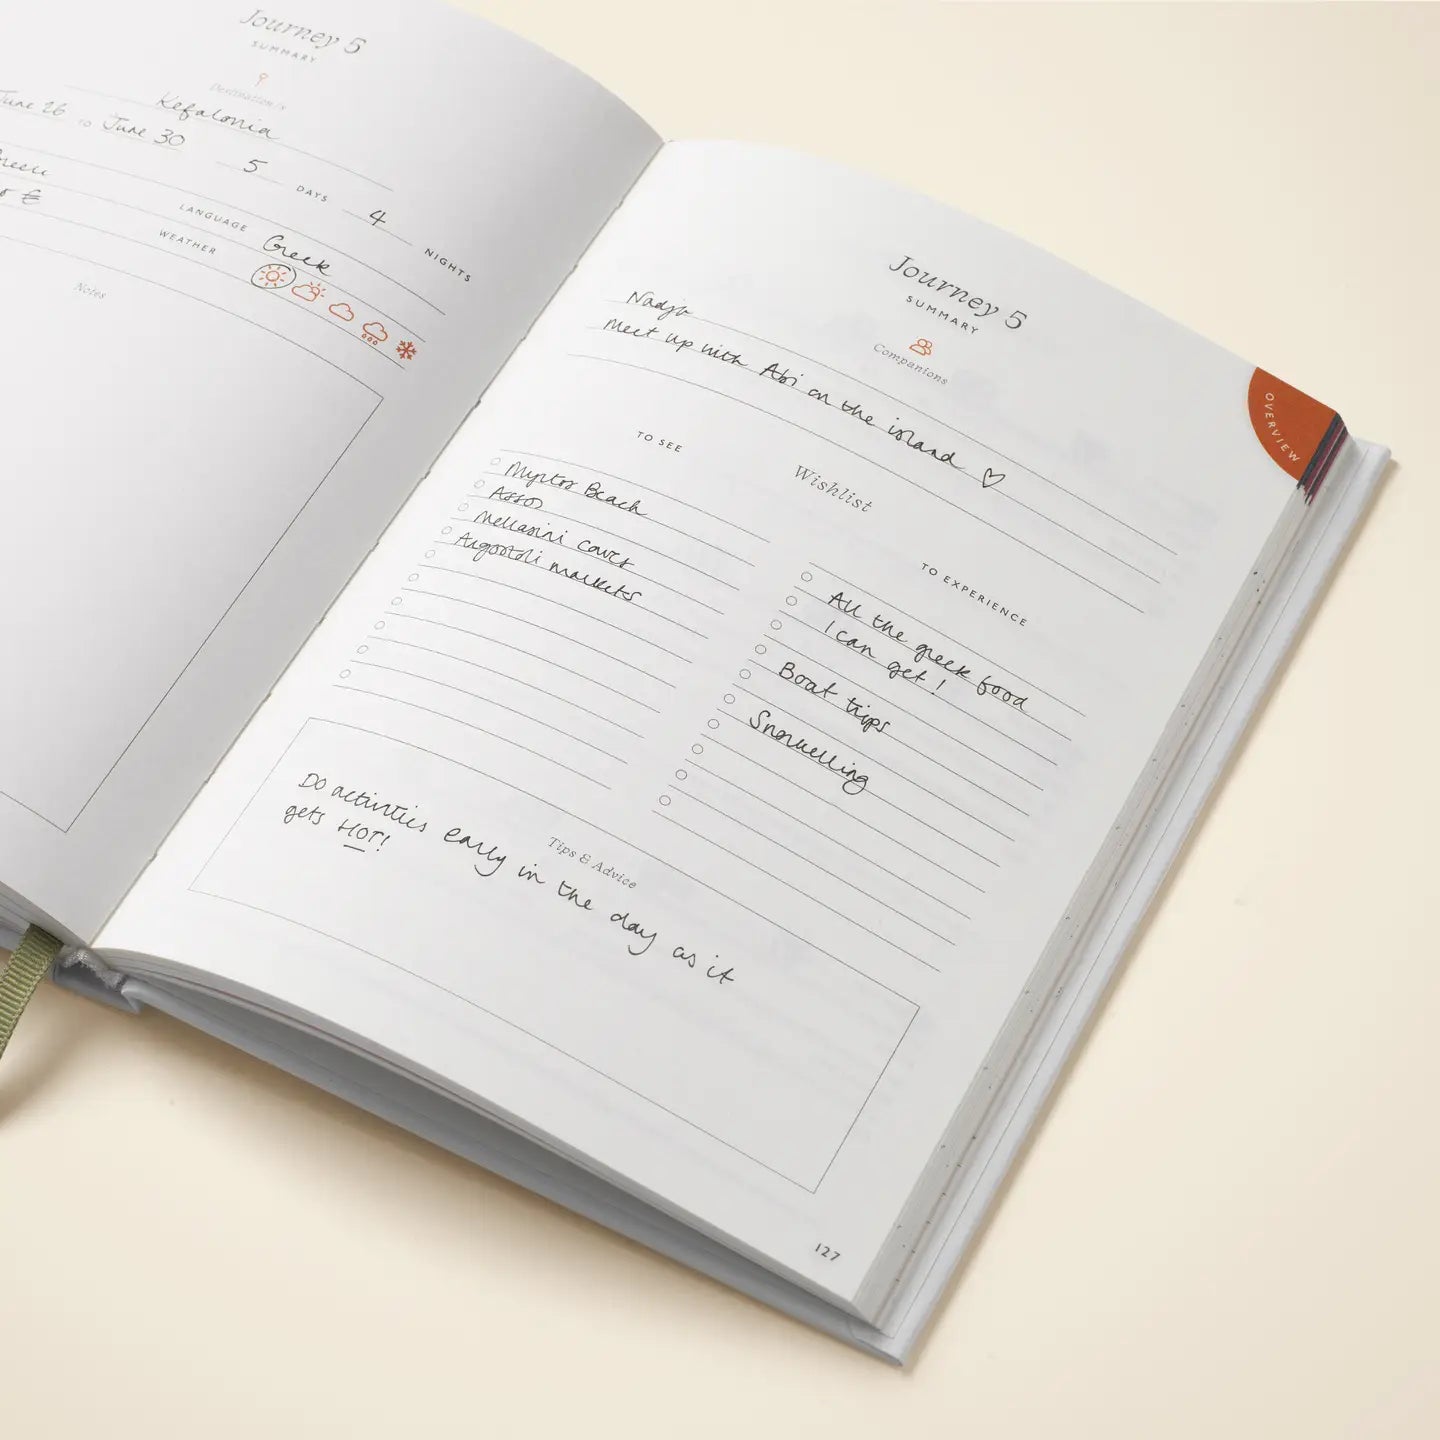 Journey 5
SUMMARY
Destination/s
Kefalonia
June 26 TO June 30
5 DAYS 4 NIGHTS
€
LANGUAGE Greek
WEATHER
Notes
Journey 5
SUMMARY
Companions
Nadja
Meet up with Abi on the island ♡
Wishlist
TO SEE
Myrtos Beach
Assos
Mellasini caves
Argostoli markets
TO EXPERIENCE
All the greek food
I can get!
Boat trips
Snorkelling
Tips & Advice
Do activities early in the day as it
gets HOT!
127
OVERVIEW